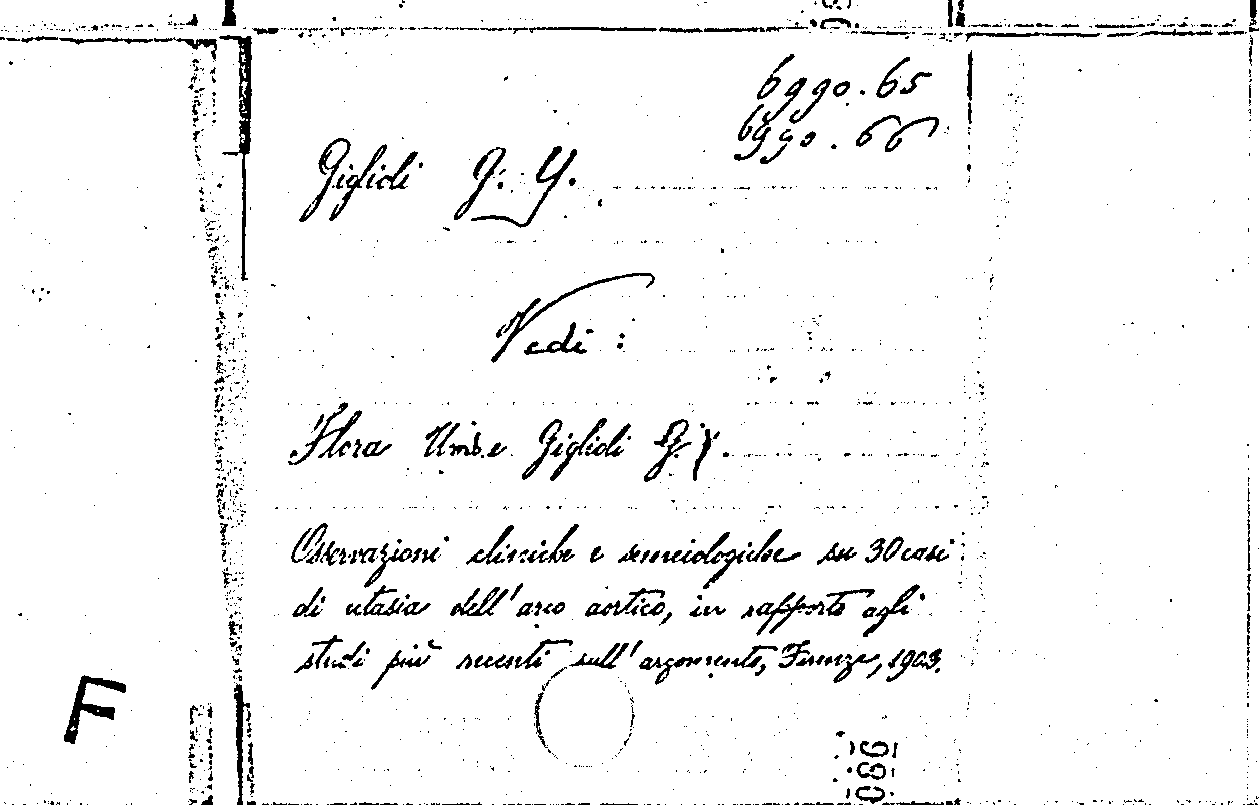 6990.65
6990.66
Giglioli G. Y.
Vedi :
Flora Umb. e Giglioli G. Y.
Osservazioni cliniche e semeiologiche su 30 casi
di ectasia dell'arco aortico, in rapporto agli
studi più recenti sull'argomento, Firenze, 1903.
F